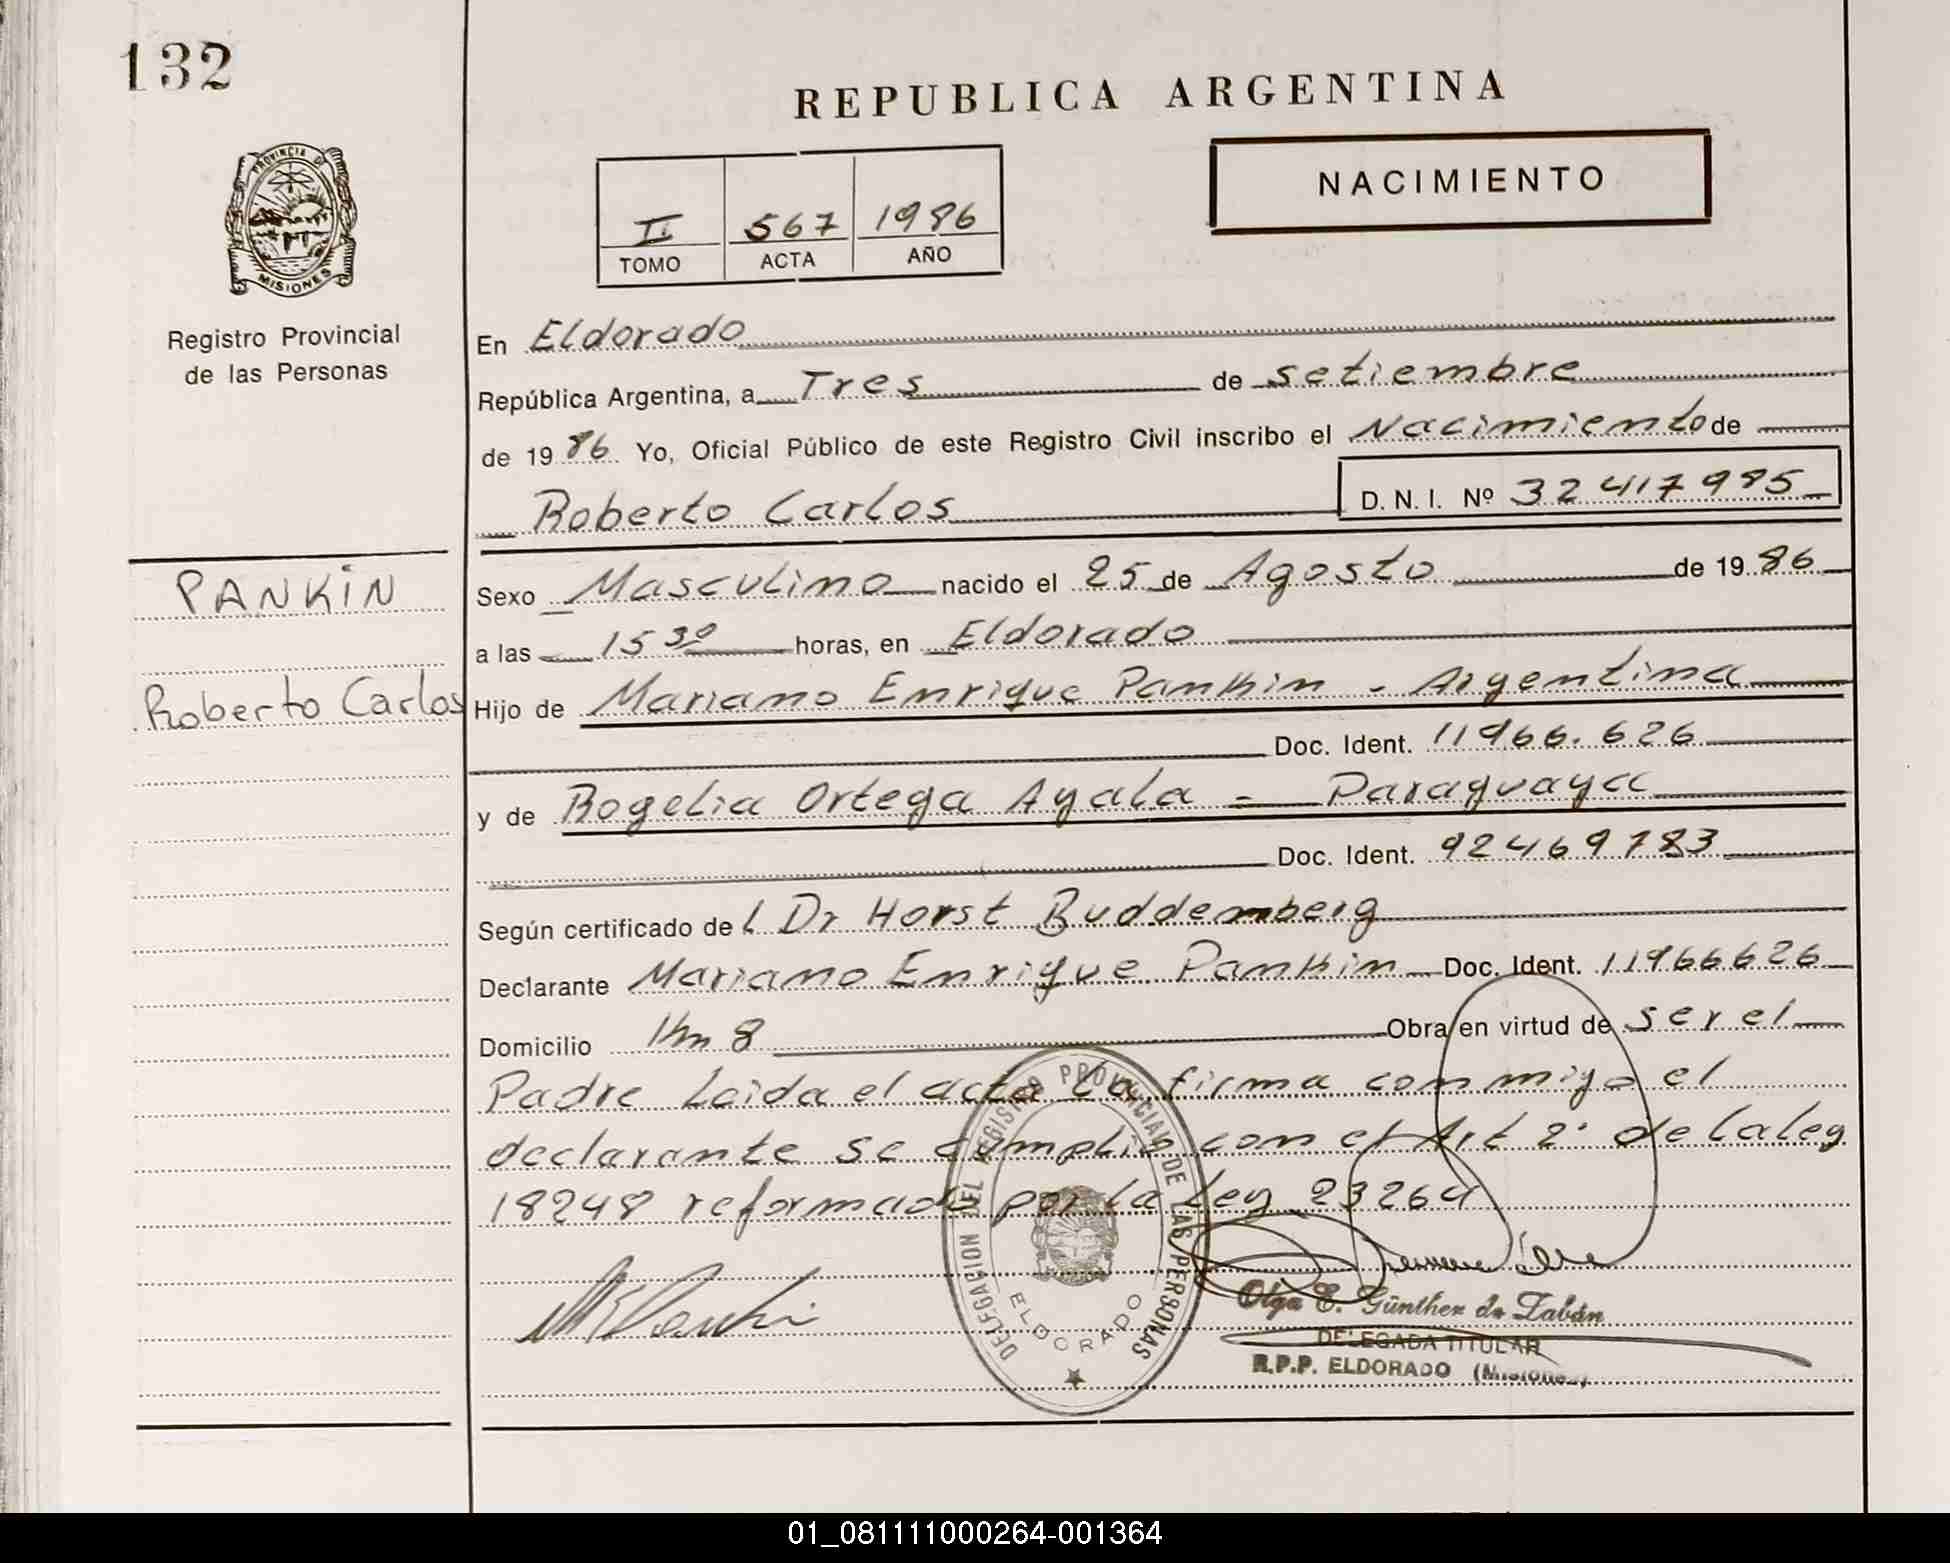 132
REPUBLICA ARGENTINA
NACIMIENTO
II 567 1986
TOMO ACTA AÑO
PROVINCIA D
MISIONES
Registro Provincial
de las Personas
En Eldorado
República Argentina, a Tres de setiembre
de 1986 Yo, Oficial Público de este Registro Civil inscribo el Nacimiento de
Roberto Carlos D. N. I. Nº 32417985
PANKIN
Sexo Masculino nacido el 25 de Agosto de 1986
a las 15 30 horas, en Eldorado
Roberto Carlos
Hijo de Mariano Enrique Pankin - Argentina
Doc. Ident. 11966.626
y de Rogelia Ortega Ayala = Paraguaya
Doc. Ident. 92469783
Según certificado de l Dr Horst Buddemberg
Declarante Mariano Enrique Pankin Doc. Ident. 11966626
Domicilio Km 8 Obra en virtud de ser el
Padre Leida el acta la firma conmigo el
declarante se cumplio con el Art 2º de la ley
18248 reformado por la Ley 23264
DELEGACION DEL REGISTRO PROVINCIAL DE LAS PERSONAS
ELDORADO
Olga E. Günther de Zabán
DELEGADA TITULAR
R.P.P. ELDORADO (Misiones)
01_081111000264-001364